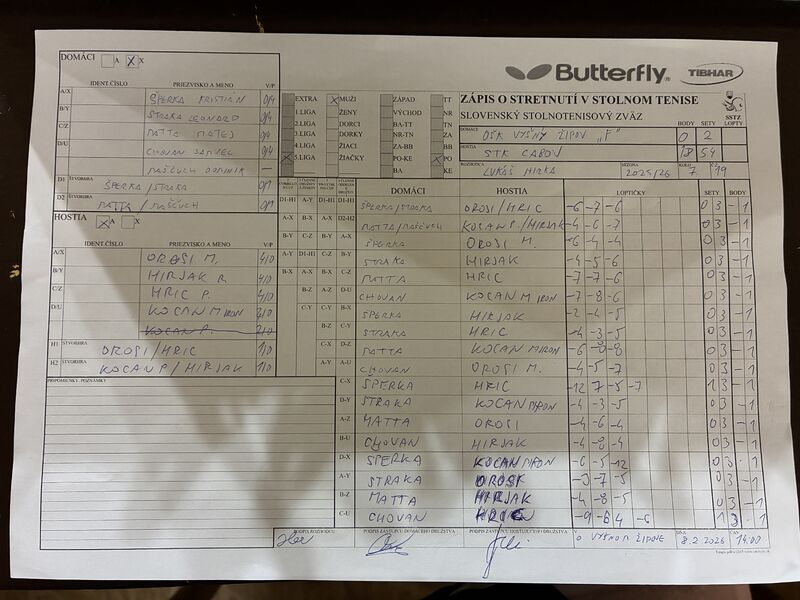 DOMÁCI A X X
Butterfly. TIBHAR
IDENT.ČÍSLO PRIEZVISKO A MENO V/P
A/X ŠPERKA KRISTIÁN 0/4
B/Y STRAKA LEONARD 0/4
C/Z MATTA MATEJ 0/4
D/U CHOVAN SAMUEL 0/4
DOMINIK —
D1 ŠTVORHRA ŠPERKA/STRAKA 0/1
D2 0/1
EXTRA X MUŽI ZÁPAD TT
1.LIGA ŽENY VÝCHOD NR
2.LIGA DORCI BA-TT TN
3.LIGA DORKY NR-TN ZA
4.LIGA ŽIACI ZA-BB BB
X 5.LIGA ŽIAČKY PO-KE X PO
BA KE
ZÁPIS O STRETNUTÍ V STOLNOM TENISE
SLOVENSKÝ STOLNOTENISOVÝ ZVÄZ
SSTZ
BODY SETY LOPTY
DOMÁCI OŠK VYŠNÝ ŽIPOV "F" 0 2
HOSTIA STK CABOV 18 54
ROZHODCA LUKÁŠ HIRKA SEZÓNA 2025/26 KOLO 7 Č. 19
HOSTIA X A
IDENT.ČÍSLO PRIEZVISKO A MENO V/P
A/X OROSI M. 4/0
B/Y HIRJAK R. 4/0
C/Z HRIC P. 4/0
D/U KOCAN MIRON 4/0
KOCAN P.
H1 ŠTVORHRA OROSI/HRIC 1/0
H2 ŠTVORHRA KOCAN P/HIRJAK 1/0
PRIPOMIENKY, POZNÁMKY
DOMÁCI HOSTIA LOPTIČKY SETY BODY
D1-H1 ŠPERKA/STRAKA OROSI/HRIC -6 -7 -6 0 3 - 1
D2-H2 KOCAN P/HIRJAK -4 -6 -7 0 3 - 1
A-X ŠPERKA OROSI M. -6 -4 -4 0 3 - 1
B-Y STRAKA HIRJAK -4 -5 -6 0 3 - 1
C-Z MATTA HRIC -7 -7 -6 0 3 - 1
D-U CHOVAN KOCAN MIRON -7 -8 -6 0 3 - 1
A-Y ŠPERKA HIRJAK -2 -4 -5 0 3 - 1
STRAKA HRIC -4 -3 -5 0 3 - 1
MATTA KOCAN MIRON -6 -8 -8 0 3 - 1
CHOVAN OROSI M. -4 -5 -7 0 3 - 1
C-X ŠPERKA HRIC -12 7 -5 -7 1 3 - 1
D-Y STRAKA KOCAN MIRON -4 -3 -5 0 3 - 1
A-Z MATTA OROSI -4 -6 -4 0 3 - 1
B-U CHOVAN HIRJAK -4 -8 -4 0 3 - 1
D-X ŠPERKA KOCAN MIRON -6 -5 -12 0 3 - 1
A-Y STRAKA OROSI -3 -7 -5 0 3 - 1
B-Z MATTA HIRJAK -4 -8 -5 0 3 - 1
C-U CHOVAN HRIC -9 -6 4 -6 1 3 - 1
PODPIS ROZHODCU PODPIS ZÁSTUPCU DOMÁCEHO DRUŽSTVA PODPIS ZÁSTUPCU HOSŤUJÚCEHO DRUŽSTVA VYŠNOM ŽIPOVE DŇA 8.2.2026 ČAS 14:00